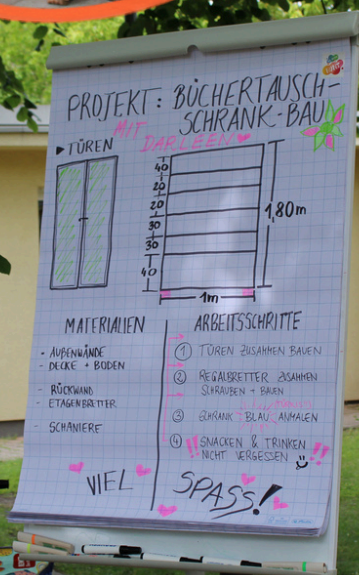 PROJEKT: BÜCHERTAUSCH-
SCHRANK-BAU
MIT DARLEEN
▸ TÜREN
40
20
20
30
30
40
1,80m
1m
MATERIALIEN
- AUßENWÄNDE
- DECKE + BODEN
- RÜCKWAND
- ETAGENBRETTER
- SCHANIERE
ARBEITSSCHRITTE
1 TÜREN ZUSAMMEN BAUEN
2 REGALBRETTER ZUSAMMEN
SCHRAUBEN + BAUEN
3 SCHRANK BLAU ANMALEN
4 !! SNACKEN & TRINKEN
NICHT VERGESSEN !!
VIEL SPASS!